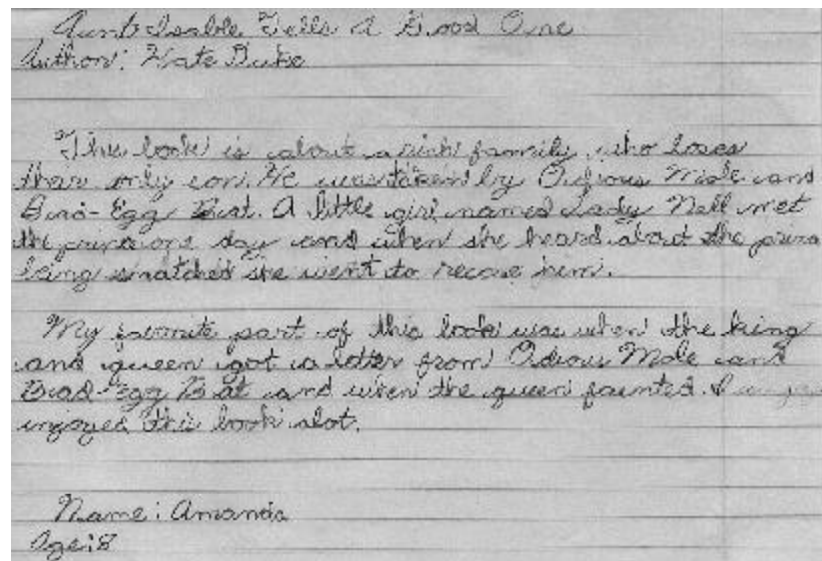 Aunt Isable Tells A Good One
Author: Kate Duke
This book is about a rich family who loses
thier only son. He was taken by Odious Mole and
Bad-Egg Bat. A little girl named Lady Nell met
the prince one day and when she heard about the prince
being snatched she went to recuse him.
My favorite part of this book was when the king
and queen got a letter from Odious Mole and
Bad-Egg Bat and when the queen fainted. I
injoyed this book alot.
Name: Amanda
Age: 8